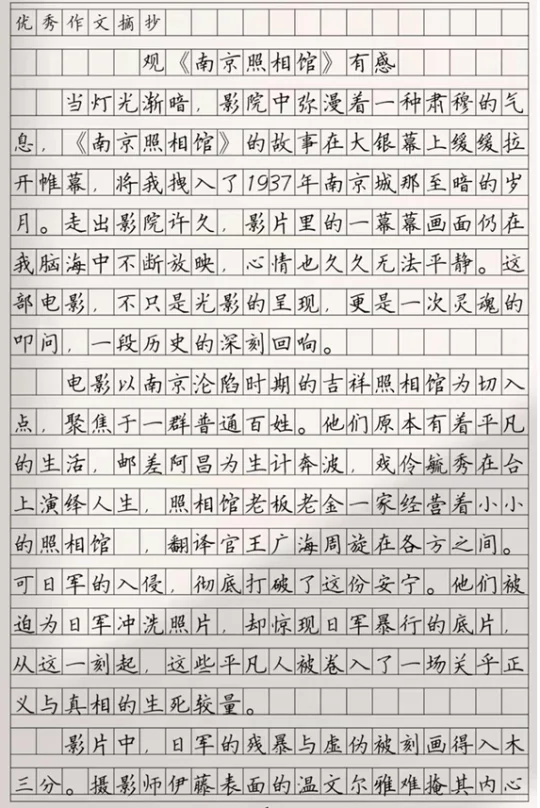 优秀作文摘抄
观《南京照相馆》有感
当灯光渐暗，影院中弥漫着一种肃穆的气
息，《南京照相馆》的故事在大银幕上缓缓拉
开帷幕，将我拽入了1937年南京城那至暗的岁
月。走出影院许久，影片里的一幕幕画面仍在
我脑海中不断放映，心情也久久无法平静。这
部电影，不只是光影的呈现，更是一次灵魂的
叩问，一段历史的深刻回响。
电影以南京沦陷时期的吉祥照相馆为切入
点，聚焦于一群普通百姓。他们原本有着平凡
的生活，邮差阿昌为生计奔波，戏伶毓秀在台
上演绎人生，照相馆老板老金一家经营着小小
的照相馆 ，翻译官王广海周旋在各方之间。
可日军的入侵，彻底打破了这份安宁。他们被
迫为日军冲洗照片，却惊现日军暴行的底片，
从这一刻起，这些平凡人被卷入了一场关乎正
义与真相的生死较量。
影片中，日军的残暴与虚伪被刻画得入木
三分。摄影师伊藤表面的温文尔雅难掩其内心